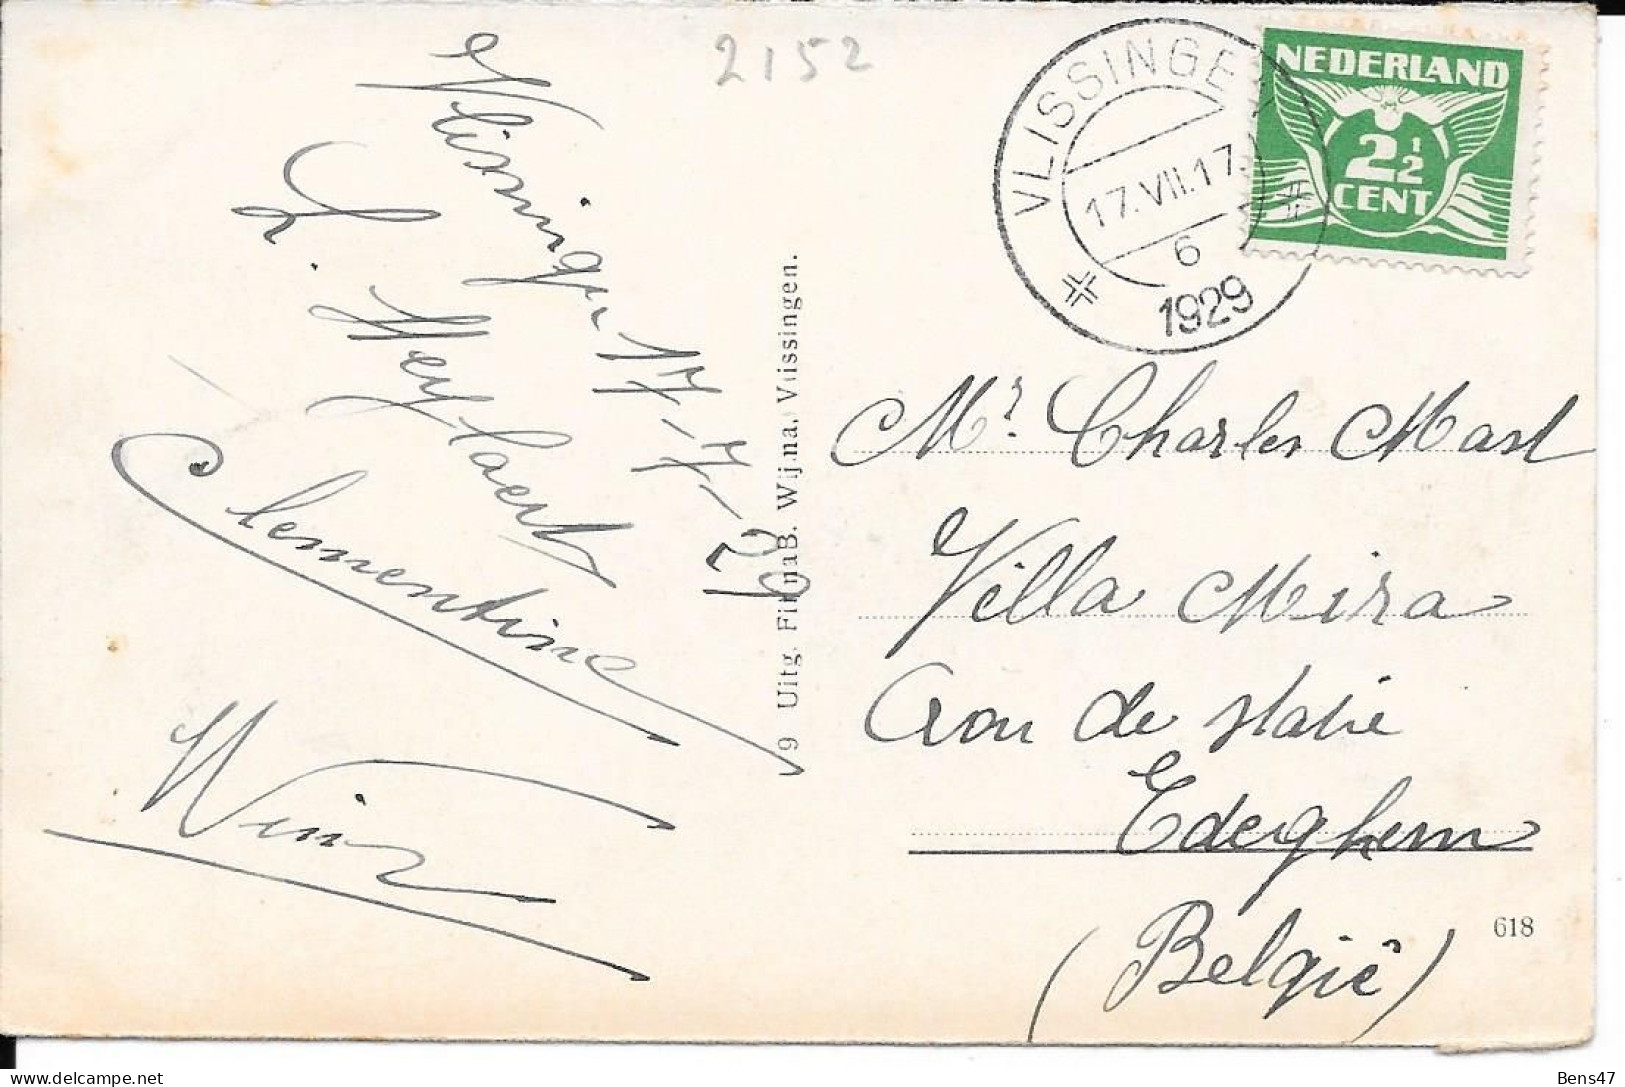 2152
VLISSINGEN
17.VII.17
6
1929
NEDERLAND
2½
CENT
Vlissingen 17-7-29
Weylaert
Clementine
Wim
9 Uitg. Firma B. Wijma, Vlissingen.
Mr. Charles Mast
Villa Mira
de statie
Edeghem
(België)
618
Bens47